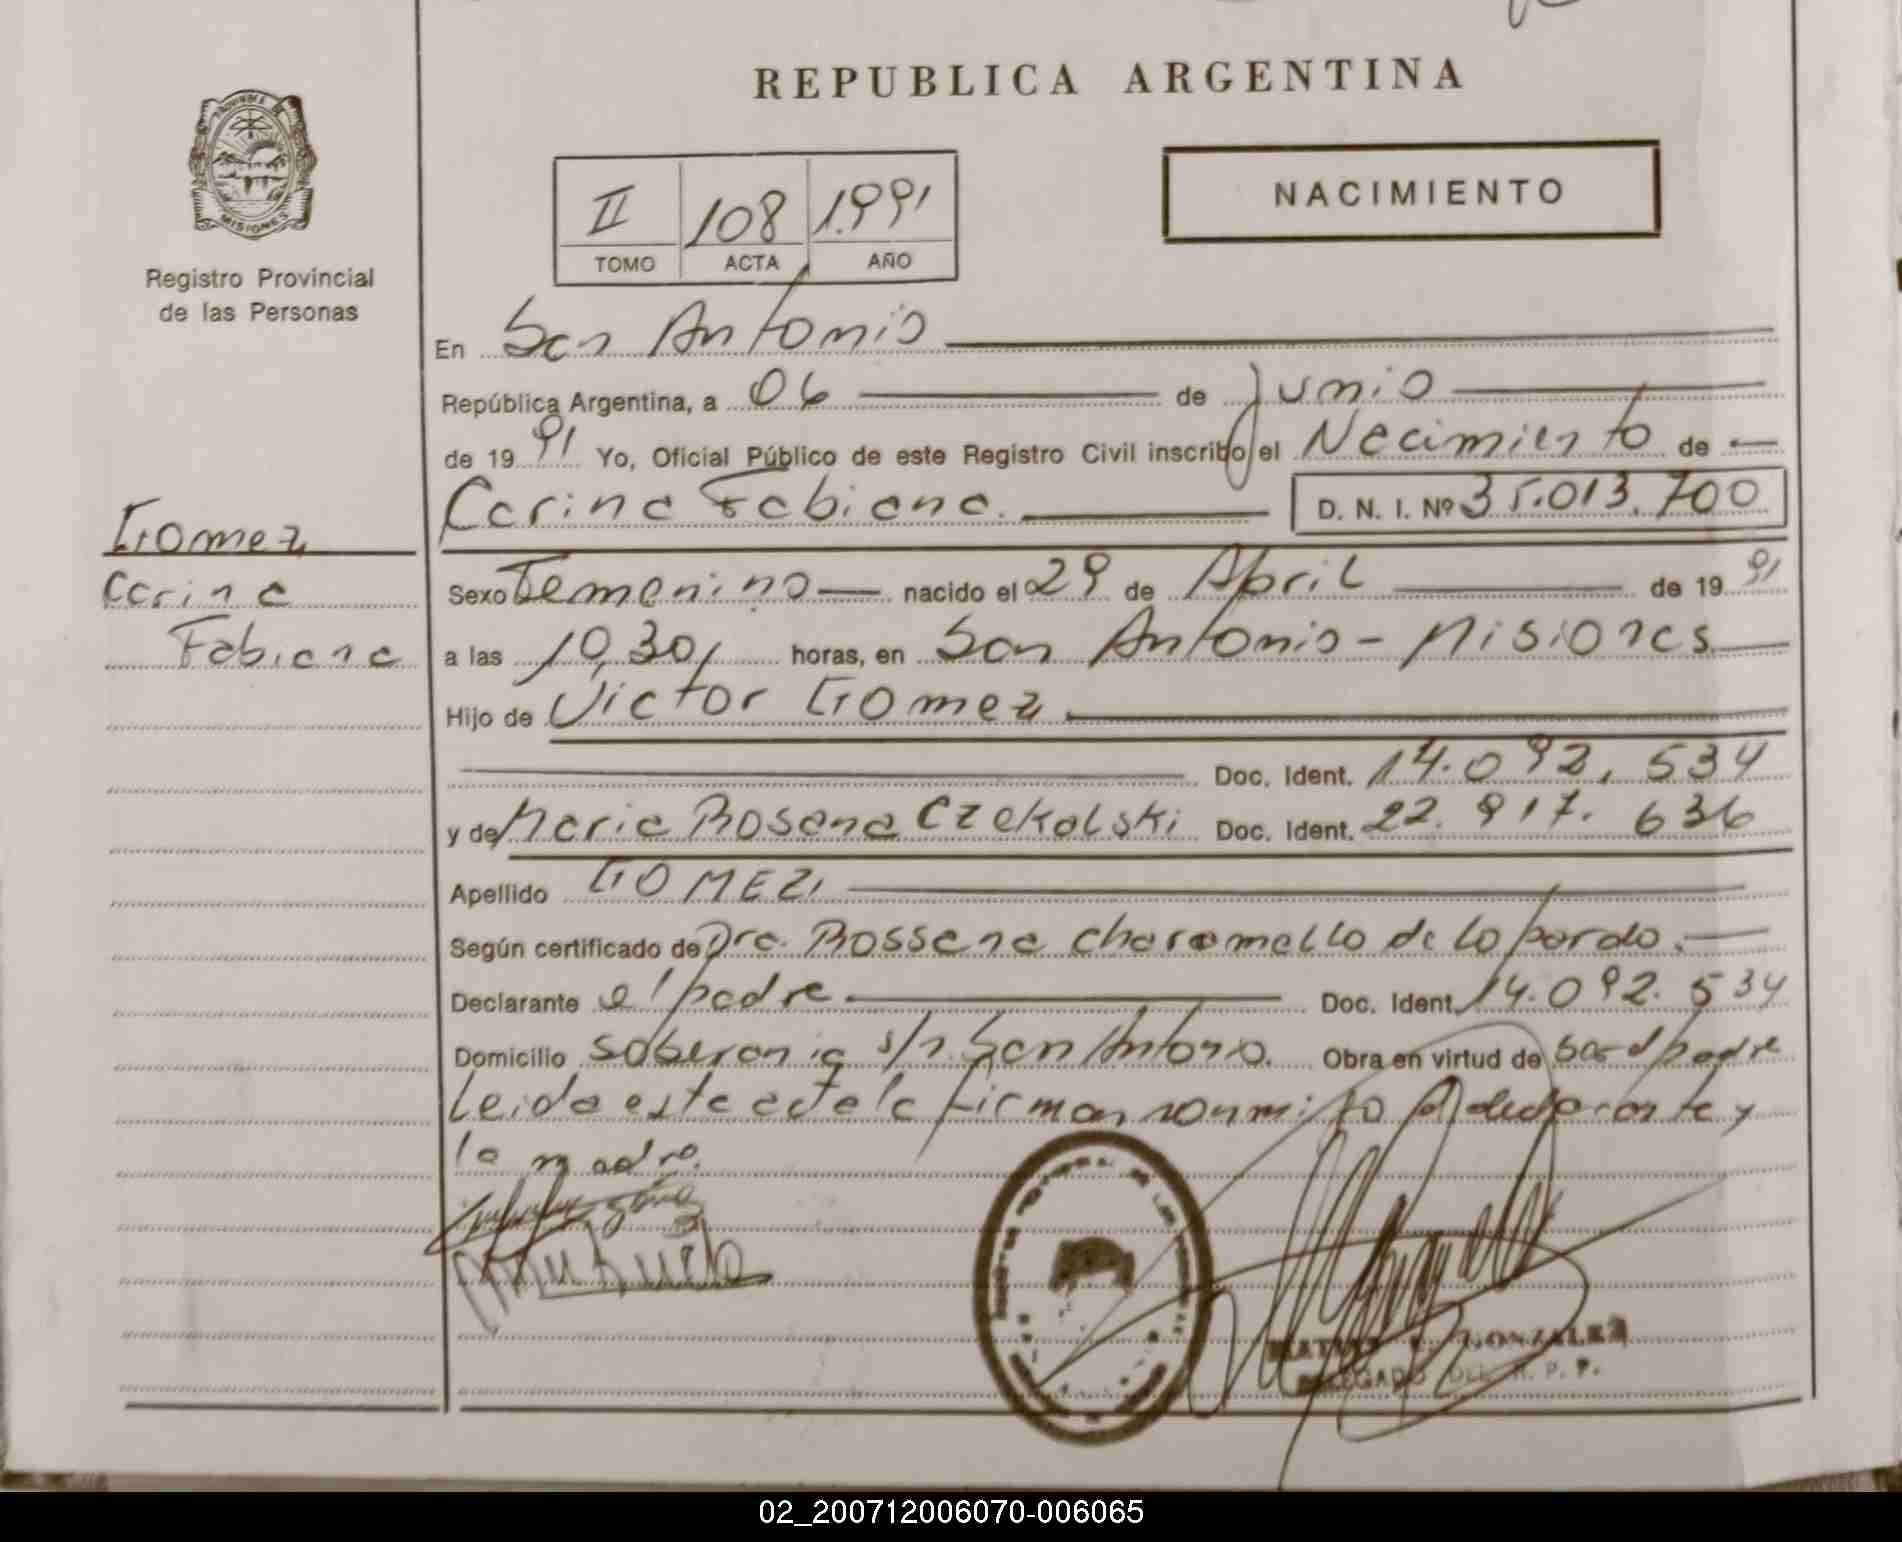 REPUBLICA ARGENTINA
PROVINCIA DE
MISIONES
Registro Provincial
de las Personas
II 108 1.991
TOMO ACTA AÑO
NACIMIENTO
En San Antonio
República Argentina, a 06 de Junio
de 1991 Yo, Oficial Público de este Registro Civil inscribo el Nacimiento de
Carina Fabiana. D. N. I. Nº 35.013.700
Gomez
Carina
Fabiana
Sexo Femenino nacido el 29 de Abril de 1991
a las 10,30, horas, en San Antonio - Misiones
Hijo de Victor Gomez
Doc. Ident. 14.092.534
y de Maria Rosana Czekalski Doc. Ident. 22.917.636
Apellido GOMEZ
Según certificado de Dra. Rossana Charamello de Lopardo.
Declarante el padre Doc. Ident. 14.092.534
Domicilio Soberania s/n San Antonio. Obra en virtud de ser el padre
Leida este acta la firman conmigo el declarante y
la madre.
GONZALEZ
DELEGADO DEL R. P. P.
02_200712006070-006065